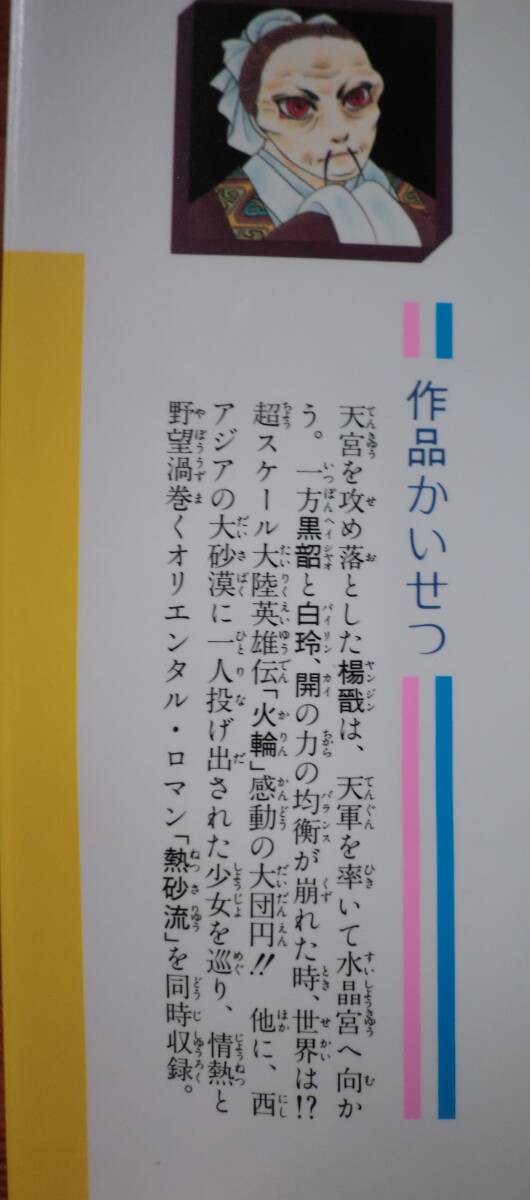 作品かいせつ
天宮を攻め落とした楊戩は、天軍を率いて水晶宮へ向か
う。一方黒韶と白玲、開の力の均衡が崩れた時、世界は!?
超スケール大陸英雄伝「火輪」感動の大団円!!　他に、西
アジアの大砂漠に一人投げ出された少女を巡り、情熱と
野望渦巻くオリエンタル・ロマン「熱砂流」を同時収録。